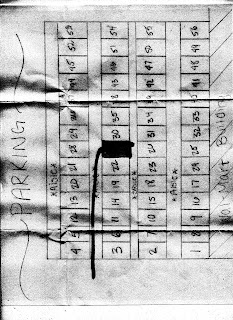 PARKING
4 5 12 13 20 21 28 29 36 37 44 45 52 53
*AISLE*
3 6 11 14 19 22 30 35 38 43 46 51 54
2 7 10 15 18 23 26 31 34 39 42 47 50 55
*AISLE*
1 8 9 16 17 24 25 32 33 40 41 48 49 56
Wal-Mart Building